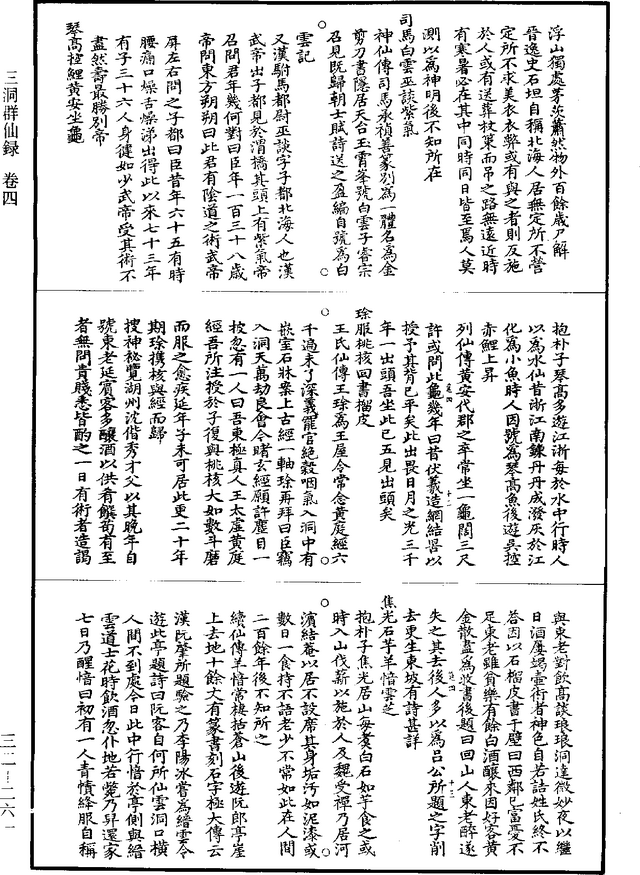 浮山獨處茅茨蕭然物外百餘歲尸解
晉逸史石坦自稱北海人居無定所不營
定所不求美衣衣弊或有與之者則反施
於人或有送葬杖策而弔之路無遠近時
有寒暑必在其中同時同日皆至焉人莫
測以為神明後不知所在
司馬白雲巫談紫氣
神仙傳司馬承禎善篆別為一體名為金
剪刀書隱居天台玉霄峯號白雲子睿宗
召見既歸朝士賦詩送之盈編自號為白
雲記
又漢駙馬都尉巫談字子都北海人也漢
武帝出子都見於渭橋其頭上有紫氣帝
召問君年幾何對曰臣年一百三十八歲
帝問東方朔朔曰此君有陰道之術武帝
屏左右問之子都曰臣昔年六十五有時
腰痛口燥舌燥涕出得此以來七十三年
有子三十六人身健如少武帝受其術不
盡然壽最勝別帝
琴高控鯉黃安坐龜
抱朴子琴高多遊江浙每於水中行時人
以為水仙昔浙江南鍊丹丹成潑灰於江
化為小魚時人因號為琴高魚後遊吳控
赤鯉上昇
列仙傳黃安代郡之卒常坐一龜闊三尺
許或問此龜幾年曰昔伏羲造網結罟以
授予其背已平矣此出畏日月之光三千
年一出頭吾坐此已五見出頭矣
琮服桃核回書榴皮
王氏仙傳王琮為王屋令常念黃庭經六
千過未了深義罷官絕穀咽氣入洞中有
嵌室石牀案上古經一軸琮再拜曰臣竊
入洞天萬劫良會今睹玄經願許塵目一
披忽有一人曰吾東極真人王太虛黃庭
經吾所注授於子後與桃核大如數斗磨
而服之愈疾延年子未可居此更二十年
期琮攜核與經而歸
搜神秘覽湖州沈偕秀才父以其晚年自
號東老延賓客多釀酒以供肴饌苟有至
者無問貴賤悉皆酌之一日有術者造謁
與東老對飲高談琅琅洞達微妙夜以繼
日酒屢竭壺術者神色自若詰姓氏終不
荅因以石榴皮書于壁曰西鄰已富憂不
足東老雖貧樂有餘白酒釀來因好客黃
金散盡為收書後題曰回山人東老醉遂
失之其去後人多以為呂公所題之字削
去更生東坡有詩甚詳
焦光石芋羊愔雲芝
抱朴子焦光居山每煑白石如芋食之或
時入山伐薪以施於人及魏受禪乃居河
濱結菴以居不設席其身垢污如泥漆或
數日一食持不語老少不常如此在人間
二百餘年後不知所之
續仙傳羊愔常棲括蒼山後遊阮郎亭崖
上去地十餘丈有篆書刻石字極大傳云
漢阮肇所題驗之乃李陽冰嘗為縉雲令
遊此亭題詩曰阮客自何所仙雲洞口橫
人間不到處今日此中行愔於亭側與縉
雲道士花時飲酒忽仆地若斃乃舁還家
七日乃醒愔曰初有一人青幘絳服自稱
三洞群仙録 卷四